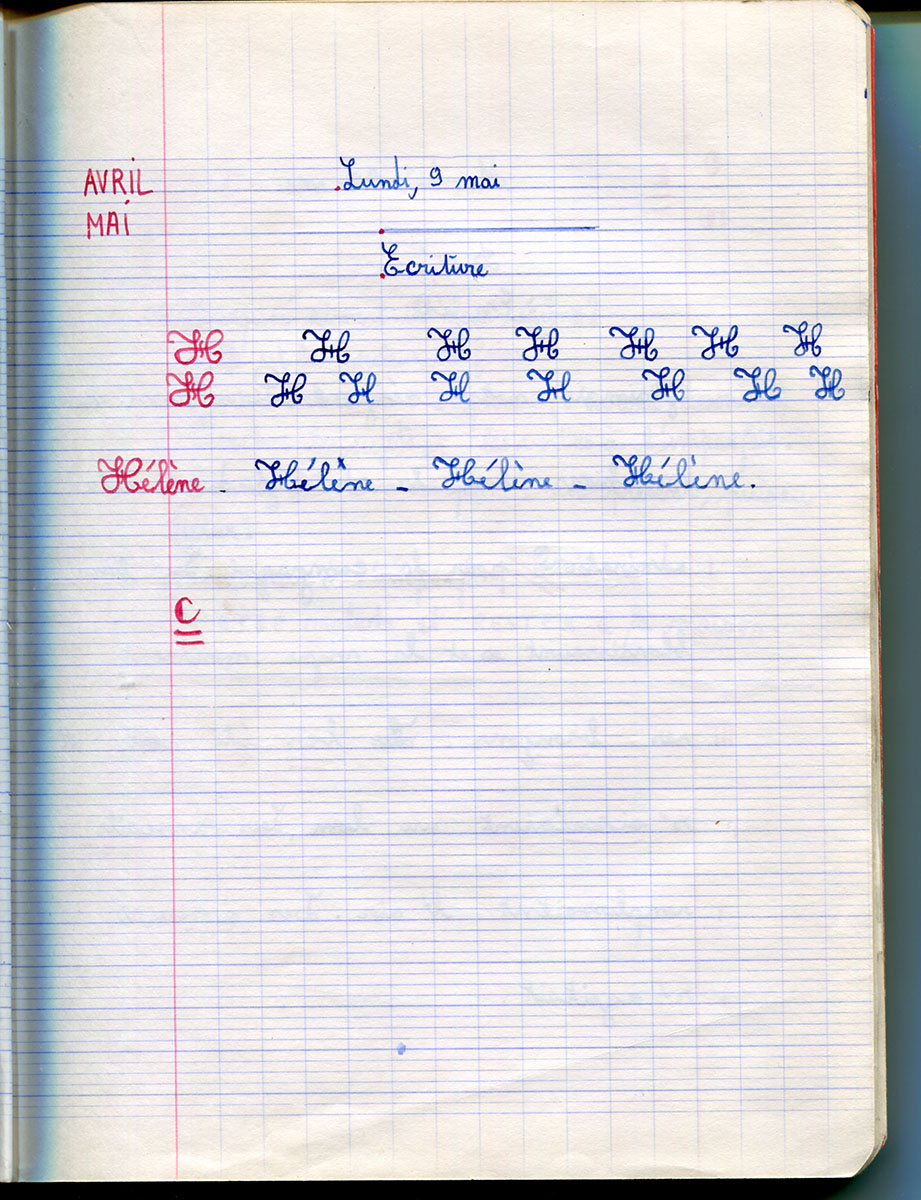 AVRIL
MAI
Lundi, 9 mai
Ecriture
H H H H H H H
H H H H H H H H
Hélène - Hélène - Hélène - Hélène.
C